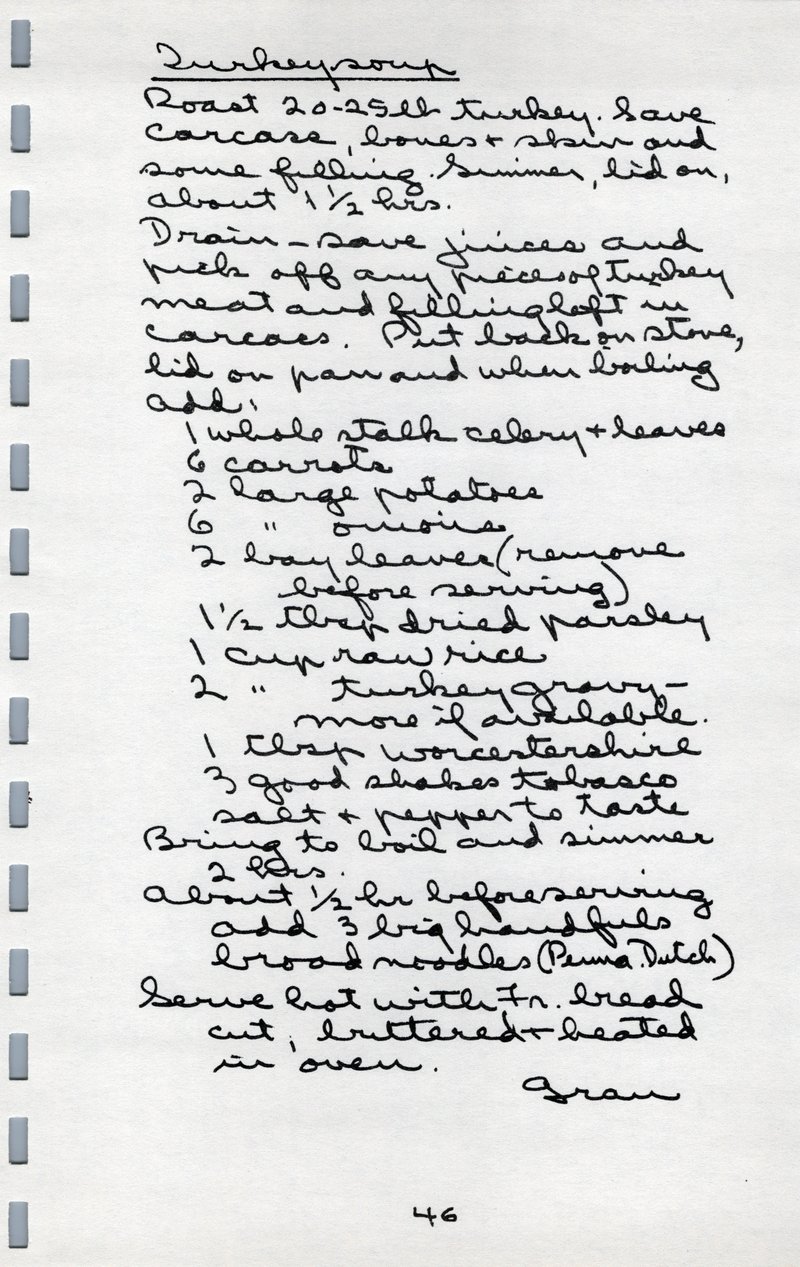 Turkey soup
Roast 20-25 lb turkey. Save
carcase, bones + skin and
some filling. Simmer, lid on,
about 1 1/2 hrs.
Drain - save juices and
pick off any pieces of turkey
meat and filling left in
carcaes. Put back on stove,
lid on pan and when boiling
add:
1 whole stalk celery + leaves
6 carrots
2 large potatoes
6 " onions
2 bay leaves (remove
before serving)
1 1/2 tbsp dried parsley
1 cup raw rice
2 " turkey gravy -
more if available.
1 tbsp worcestershire
3 good shakes tobasco
salt + pepper to taste
Bring to boil and simmer
2 hrs.
About 1/2 hr before serving
add 3 big handfuls
broad noodles (Penna. Dutch)
Serve hot with Fr. bread
cut, buttered + heated
in oven.
Gran
46